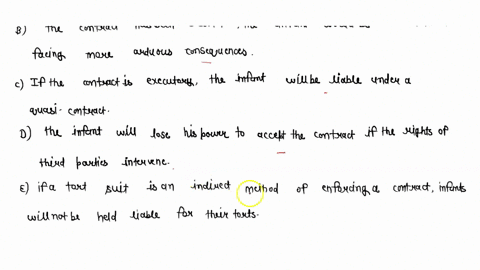 B) the contract has been
facing more arduous consequences.
c) If the contract is executory, the infant will be liable under a
quasi-contract.
D) the infant will lose his power to accept the contract if the rights of
third parties intervene.
E) if a tort suit is an indirect method of enforcing a contract, infants
will not be held liable for their torts.